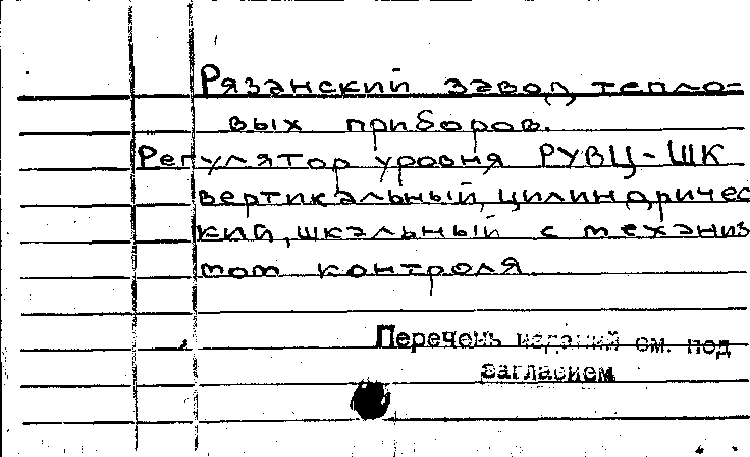 Рязанский завод тепло=
вых приборов.
Регулятор уровня РУВЦ-ШК
вертикальный, цилиндричес
кий, шкальный с механиз
мом контроля.
Перечень изданий см. под
заглавием